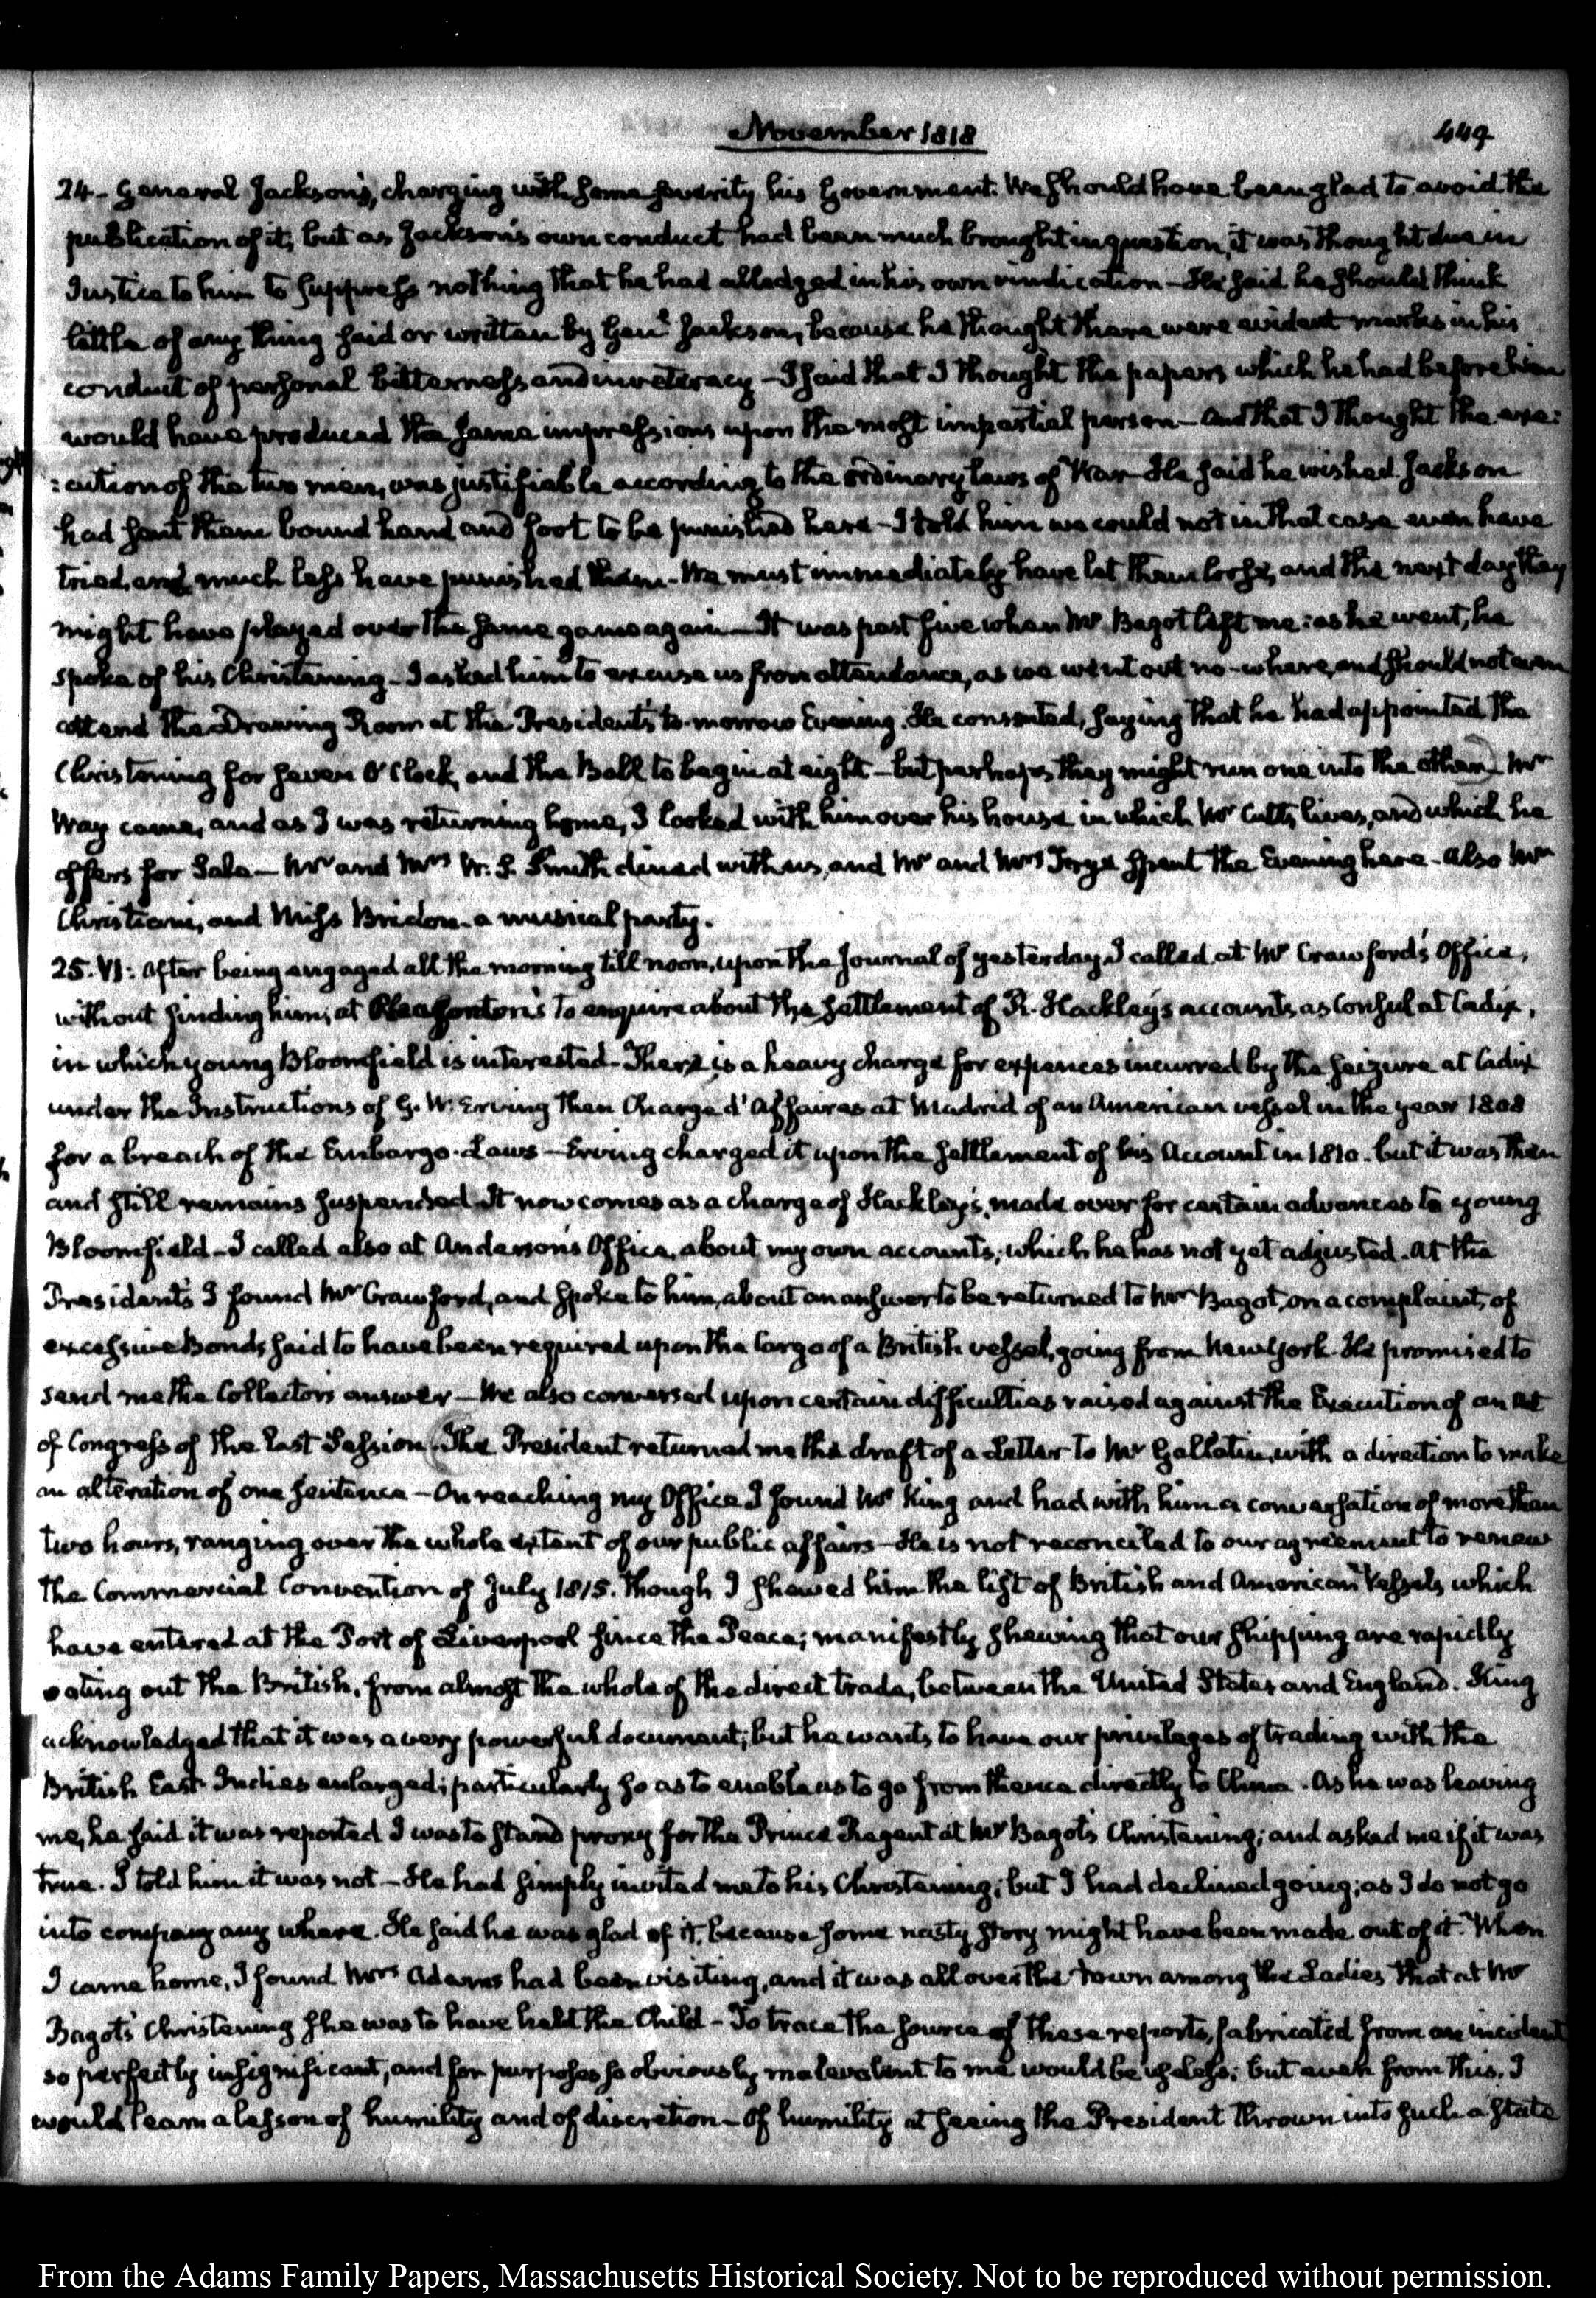 November 1818
449
24- General Jackson's, charging with some severity his Government. We should have been glad to avoid the
publication of it; but as Jackson's own conduct had been much brought in question, it was thought due in
Justice to him to suppress nothing that he had alledged in his own vindication — He said he should think
little of any thing said or written by Genl. Jackson, because he thought there were evident marks in his
conduct of personal bitterness and inveteracy — I said that I thought the papers which he had before him
would have produced the same impressions upon the most impartial person — and that I thought the exe:
:cution of the two men, was justifiable according to the ordinary laws of War — He said he wished Jackson
had sent them bound hand and foot to be punished here — I told him we could not in that case even have
tried, and much less have punished them — We must immediately have let them loose, and the next day they
might have played over the same game again — It was past five when Mr. Bagot left me: as he went, he
spoke of his Christening — I asked him to excuse us from attendance, as we went out no-where, and should not even
attend the Drawing Room at the President's to-morrow Evening. He consented, saying that he had appointed the
Christening for seven O'Clock, and the Ball to begin at eight — but perhaps they might run one into the other — Mr
Way came, and as I was returning home, I looked with him over his house in which Mr Cutts lives, and which he
offers for Sale — Mr and Mrs W. S. Smith dined with us, and Mr and Mrs Frye spent the Evening here — Also Mr
Christiani, and Miss Bridon — a musical party.
25. VI: After being engaged all the morning till noon, upon the Journal of yesterday, I called at Mr Crawford's Office,
without finding him; at Pleasonton's to enquire about the settlement of R. Hackley's accounts, as Consul at Cadiz,
in which young Bloomfield is interested — There is a heavy charge for expences incurred by the seizure at Cadiz
under the Instructions of G. W. Erving then Chargé d'Affaires at Madrid of an American vessel in the year 1808
for a breach of the Embargo-Laws — Erving charged it upon the settlement of his Account in 1810. but it was then
and still remains suspended. It now comes as a charge of Hackley's, made over for certain advances to young
Bloomfield — I called also at Anderson's Office, about my own accounts, which he has not yet adjusted. At the
President's I found Mr Crawford, and spoke to him, about an answer to be returned to Mr Bagot, on a complaint, of
excessive Bonds said to have been required upon the Cargo of a British vessel, going from New York. He promised to
send me the Collector's answer — We also conversed upon certain difficulties raised against the Execution of an Act
of Congress of the last Session. The President returned me the draft of a Letter to Mr Gallatin, with a direction to make
an alteration of one sentence — On reaching my Office I found Mr King and had with him a conversation of more than
two hours, ranging over the whole extent of our public affairs — He is not reconciled to our agreement to renew
the Commercial Convention of July 1815. though I shewed him the list of British and American Vessels which
have entered at the Port of Liverpool since the Peace; manifestly shewing that our shipping are rapidly
eating out the British, from almost the whole of the direct trade, between the United States and England. King
acknowledged that it was a very powerful document; but he wants to have our privileges of trading with the
British East-Indies enlarged; particularly so as to enable us to go from thence directly to China. As he was leaving
me, he said it was reported I was to stand proxy for the Prince Regent at Mr Bagot's Christening; and asked me if it was
true. I told him it was not — He had simply invited me to his Christening; but I had declined going; as I do not go
into company any where. He said he was glad of it, because some nasty story might have been made out of it. When
I came home, I found Mrs Adams had been visiting, and it was all over the town among the Ladies that at Mr
Bagot's Christening she was to have held the Child — To trace the source of these reports, fabricated from an incident
so perfectly insignificant, and for purposes so obviously malevolent to me would be useless; but even from this, I
would learn a lesson of humility and of discretion — Of humility at seeing the President thrown into such a state
From the Adams Family Papers, Massachusetts Historical Society. Not to be reproduced without permission.